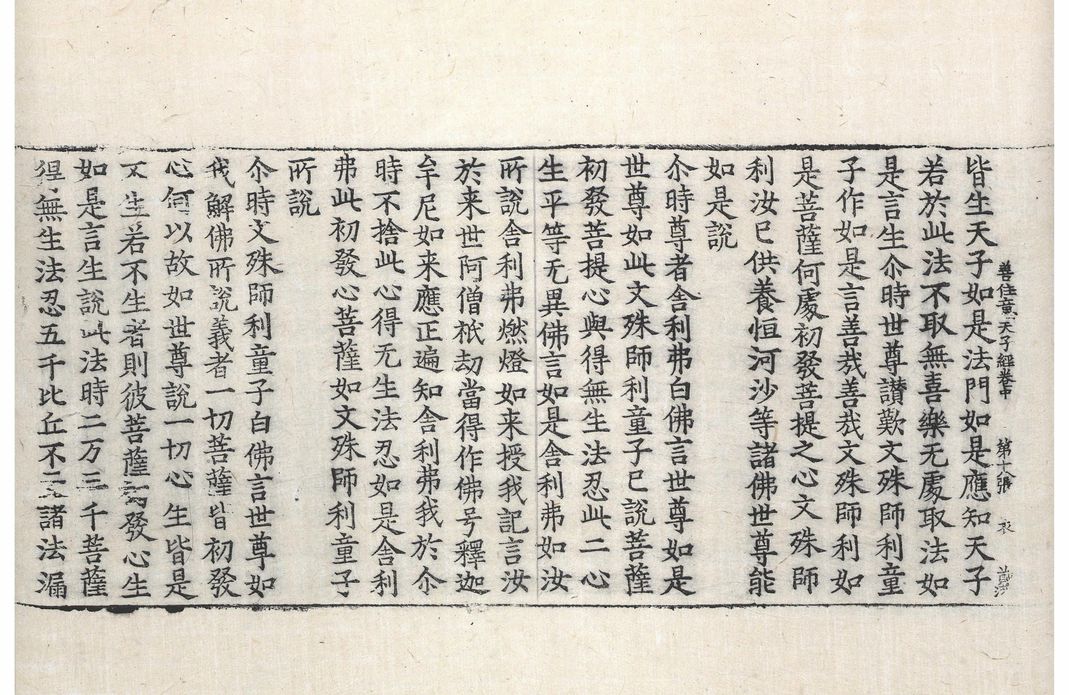 善住意天子經卷中 第十張 衣
皆生天子如是法門如是應知天子
若於此法不取無喜樂无處取法如
是言生尒時世尊讃歎文殊師利童
子作如是言善㢤善㢤文殊師利如
是菩薩何處初發菩提之心文殊師
利汝已供養恒河沙等諸佛世尊能
如是說
尒時尊者舍利弗白佛言世尊如是
世尊如此文殊師利童子已說菩薩
初發菩提心與得無生法忍此二心
生平等无異佛言如是舍利弗如汝
所說舍利弗燃燈如来授我記言汝
於来世阿僧祇劫當得作佛号釋迦
牟尼如来應正遍知舍利弗我於尒
時不捨此心得无生法忍如是舍利
弗此初發心菩薩如文殊師利童子
所說
尒時文殊師利童子白佛言世尊如
我解佛所說義者一切菩薩皆初發
心何以故如世尊說一切心生皆是
不生若不生者則彼菩薩初發心生
如是言生說此法時二万三千菩薩
得無生法忍五千比丘不受諸法漏